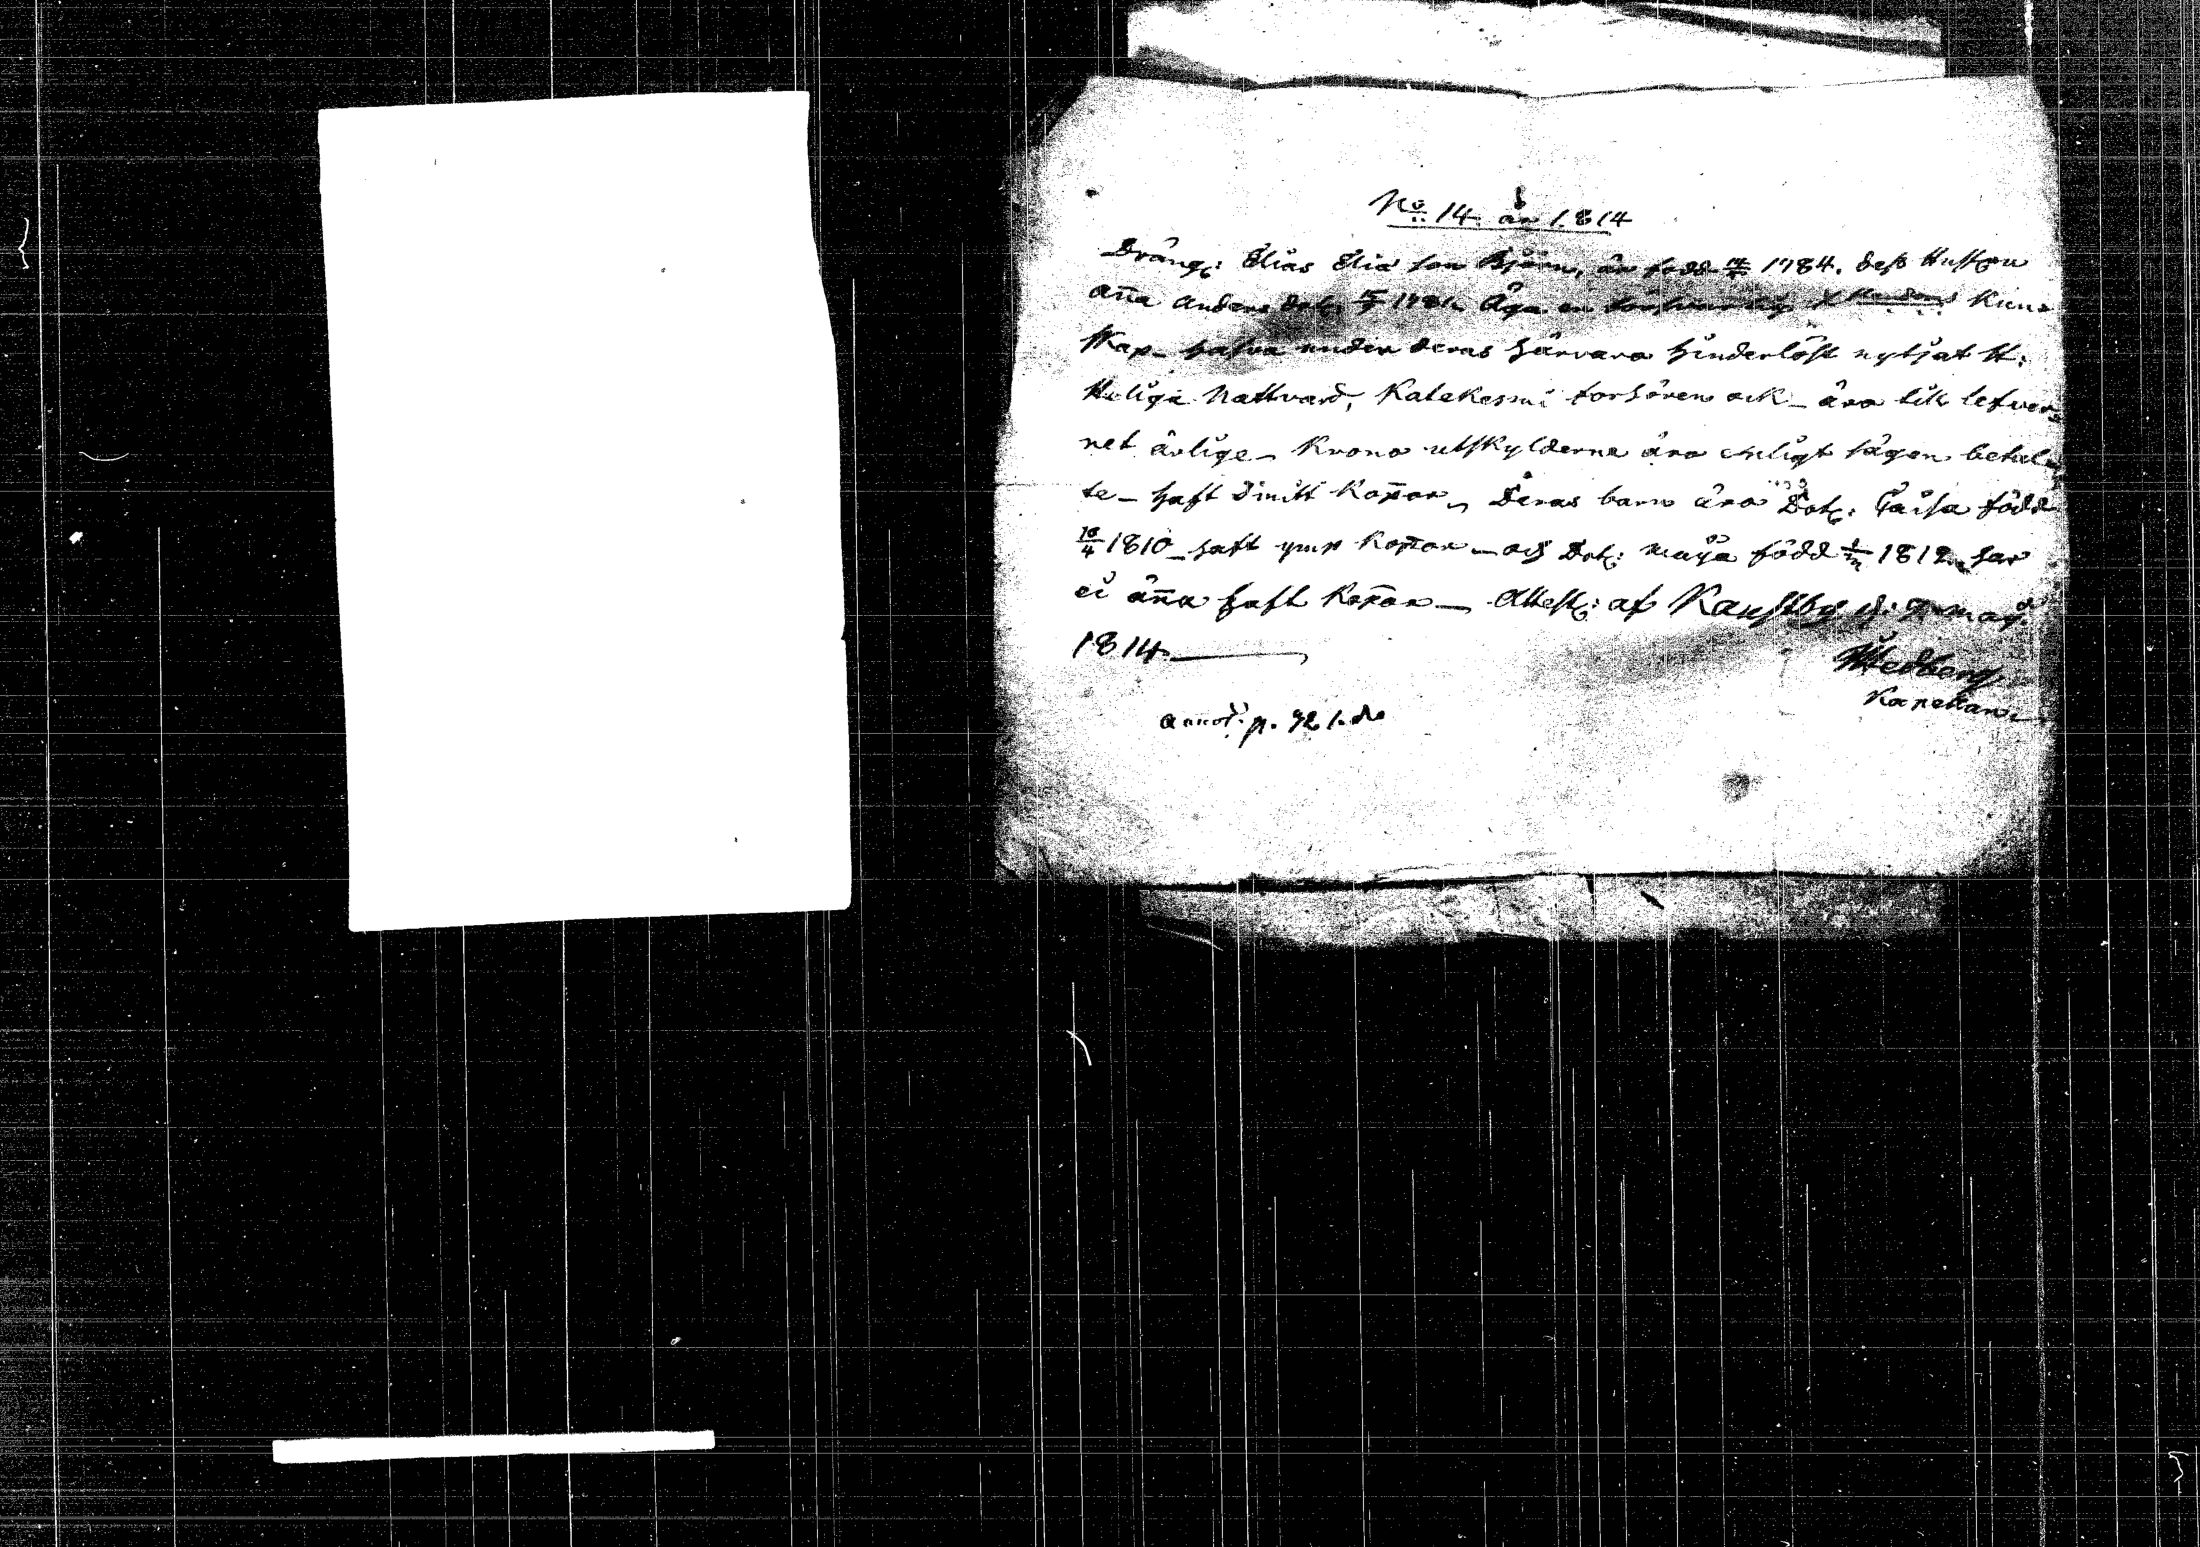 No 14. år 1814
Dräng: Elias Elia son Björn, är född 1784. dess Hustru
Aña Anders dot: Äga en försvarlig Kun-
skap - hafva under deras härvaro hinderlöst nyttjat H:
Heliga Nattvard, Katekesmi förhören ock - äro till lefver-
net ärlige - Krono utskylderne äro enligt sägen betal-
te - haft Smitt Koppor - Deras barn äro Dot: Caisa född
10/4 1810 - haft ymp Koppor - och Dot: Maja född 1812 - har
ei äña haft Koppor - Attest: af Kaustby d: Maj
1814
Wedberg
Kapellan:
annot: p. 92